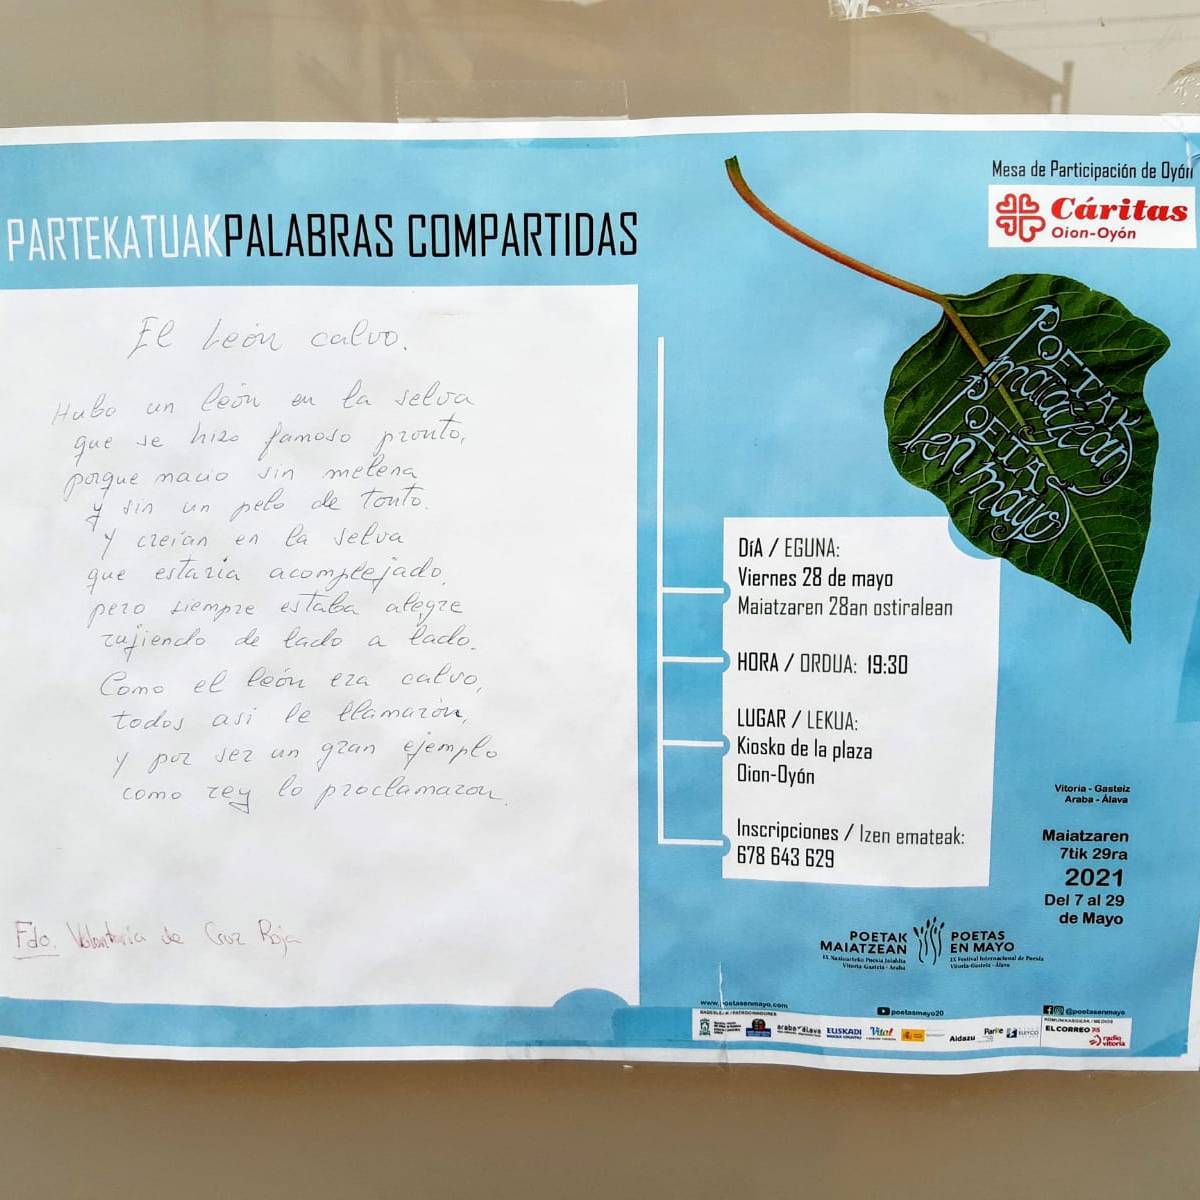 PARTEKATUAK PALABRAS COMPARTIDAS
El León calvo.
Hubo un león en la selva
que se hizo famoso pronto,
porque nacio sin melena
y sin un pelo de tonto.
y creían en la selva
que estaria acomplejado,
pero siempre estaba alegre
rujiendo de lado a lado.
Como el león era calvo,
todos asi le llamarón,
y por ser un gran ejemplo
como rey lo proclamaron.
Fdo. Voluntaria de Cruz Roja
Mesa de Participación de Oyón
Cáritas
Oion-Oyón
POETAK
maiatzean
POETAS
en mayo
DíA / EGUNA:
Viernes 28 de mayo
Maiatzaren 28an ostiralean
HORA / ORDUA: 19:30
LUGAR / LEKUA:
Kiosko de la plaza
Oion-Oyón
Inscripciones / Izen emateak:
678 643 629
Vitoria - Gasteiz
Araba - Álava
Maiatzaren
7tik 29ra
2021
Del 7 al 29
de Mayo
POETAK
MAIATZEAN
IX Nazioarteko Poesia Jaialdia
Vitoria-Gasteiz - Araba
POETAS
EN MAYO
IX Festival Internacional de Poesía
Vitoria-Gasteiz - Álava
www.poetasenmayo.com
poetasmayo20
@poetasenmayo
BABESLEAK / PATROCINADORES
araba álava
EUSKADI
BASQUE COUNTRY
Vital
Aldazu
Parke
KOMUNIKABIDEAK / MEDIOS
EL CORREO
radio
vitoria